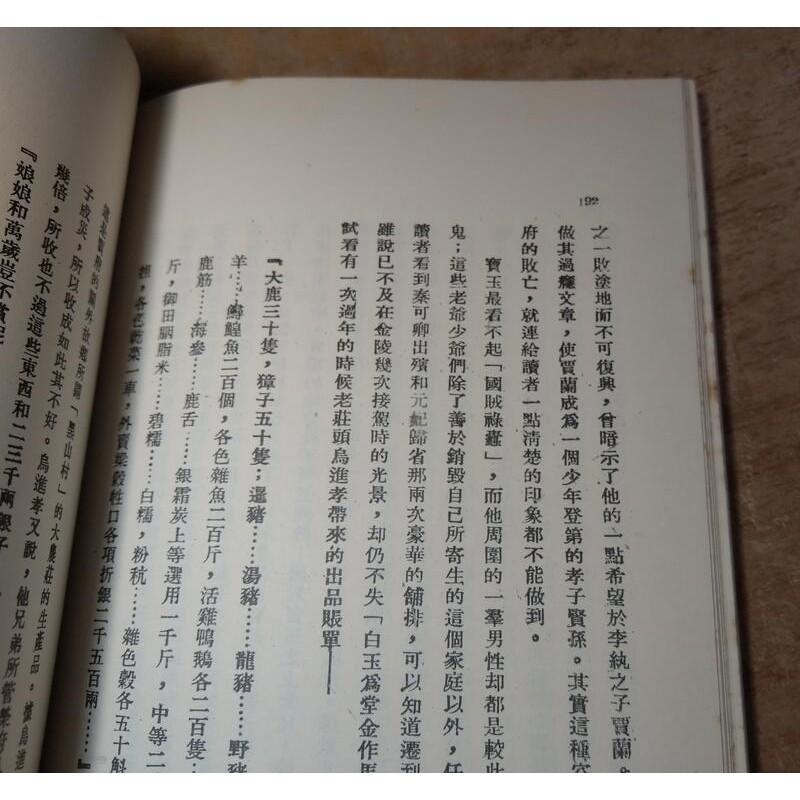 192
之一敗塗地而不可復興，曾暗示了他的一點希望於李紈之子賈蘭。
做其過癮文章，使賈蘭成爲一個少年登第的孝子賢孫。其實這種
府的敗亡，就連給讀者一點淸楚的印象都不能做到。
寶玉最看不起「國賊祿蠹」，而他周圍的一羣男性却都是較此
鬼；這些老爺少爺們除了善於銷毀自己所寄生的這個家庭以外，任
讀者看到秦可卿出殯和元妃歸省那兩次豪華的舖排，可以知道遷到
雖說已不及在金陵幾次接駕時的光景，却仍不失「白玉爲堂金作馬
試看有一次過年的時候老莊頭烏進孝帶來的出品賬單——
『大鹿三十隻，獐子五十隻；暹豬……湯豬……龍豬……野豬
羊……鱘鰉魚二百個，各色雜魚二百斤，活雞鴨鵝各二百隻…
鹿筋……海參……鹿舌……銀霜炭上等選用一千斤，中等二
斤，御田胭脂米……碧糯……白糯，粉秔……雜色穀各五十斛
各色乾菜一車，外賣粱穀牲口各項折銀二千五百兩……』
「黑山村」的大農莊的生產品。據烏進
子成災，所以收成如此其不好。烏進孝又說，他兄弟所管榮府
幾倍，所收也不過這些東西和二三千兩銀子
『娘娘和萬歲豈不賞